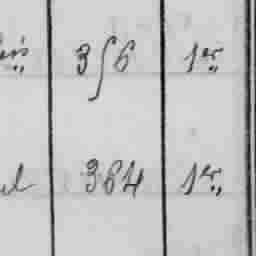 356 1er
364 1er